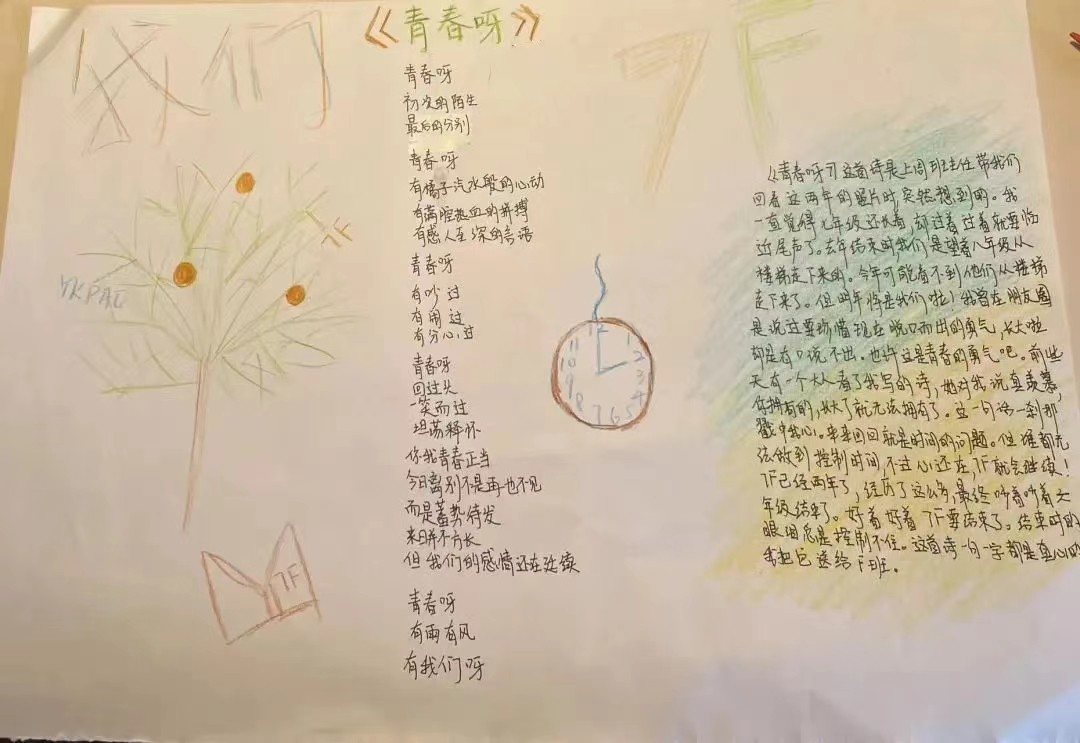 我们
7F
YKPAO
7F
7F
《青春呀》
青春呀
初次的陌生
最后的分别
青春呀
有橘子汽水般的心动
有满腔热血的拼搏
有感人至深的言语
青春呀
有吵过
有闹过
有分心过
青春呀
回过头
一笑而过
坦荡释怀
你我青春正当
今日离别不是再也不见
而是蓄势待发
来日并不方长
但我们的感情还在延续
青春呀
有雨有风
有我们呀
12 1 2 3 4 5 6 7 8 9 10 11
《青春呀》这首诗是上周班主任带我们
回看这两年的照片时,突然想到的。我
一直觉得七年级还长着,却过着过着就要临
近尾声了。去年结束时我们是望着八年级从
楼梯走下来的。今年可能看不到他们从楼梯
走下来了。但明年将是我们啦!我曾在朋友圈
是说过要珍惜现在脱口而出的勇气,长大啦
却是有口说不出。也许这是青春的勇气吧。前些
天有一个大人看了我写的诗,她对我说真羡慕
你拥有的,长大了就无法拥有了。这一句话一刹那
戳中我心。来来回回就是时间的问题。但谁都无
法做到控制时间,不过心还在,7F就会继续!
7F已经两年了,经历了这么多,最终听着听着七
年级结束了。好着好着7F要结束了。结束时的
眼泪总是控制不住。这首诗一句一字都是真心的
我把它送给F班。